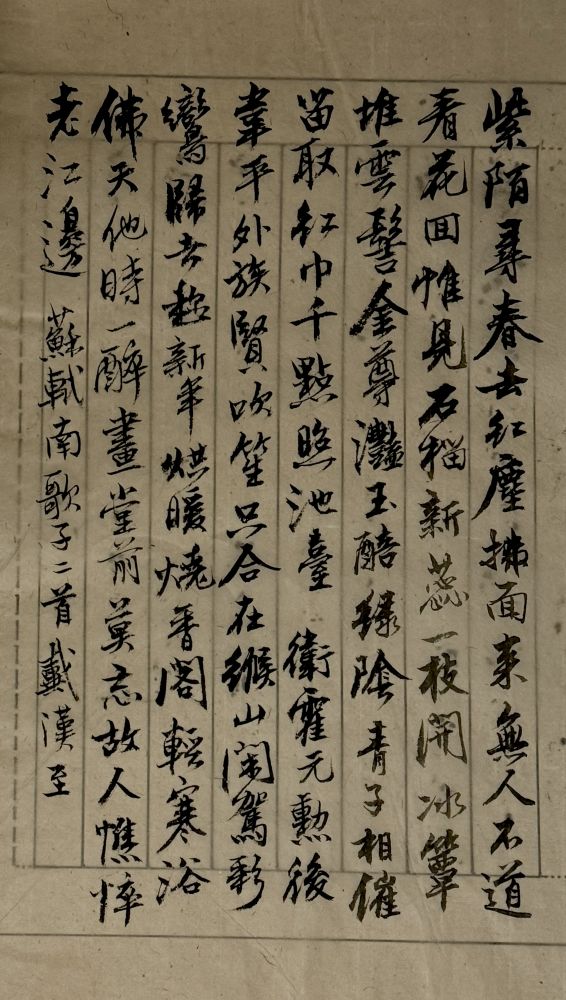 紫陌尋春去紅塵拂面來無人不道
看花回惟見石榴新蕊一枝開冰簟
堆雲髻金尊灩玉醅綠陰青子相催
留取紅巾千點照池臺 衛霍元勳後
韋平外族賢吹笙只合在緱山閒駕彩
鸞歸去趁新年烘暖燒香閣輕寒浴
佛天他時一醉畫堂前莫忘故人憔悴
老江邊 蘇軾南歌子二首戴漢至